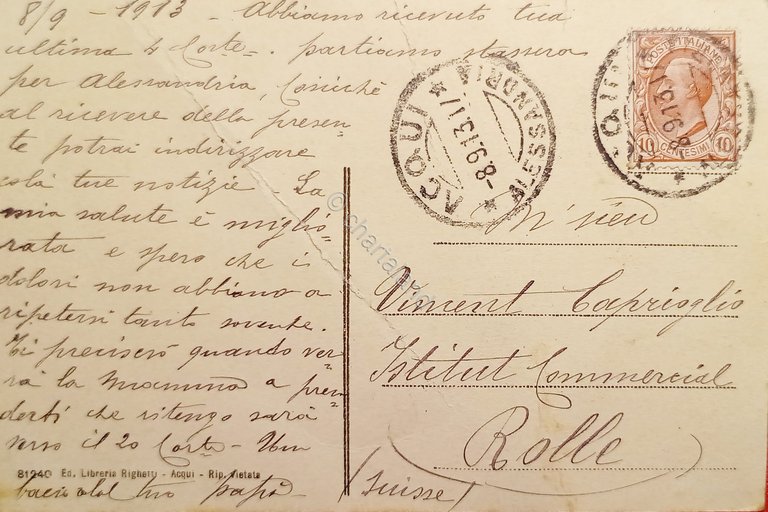 8/9 - 1913 - Abbiamo ricevuto tua
ultima 4 Corte. partiamo stassera
per Alessandria, Cosicchè
al ricevere della presen-
te potrai indirizzare
colà tue notizie. La
mia salute è miglio-
rata e spero che i
dolori non abbiano a
ripetersi tanto sovente.
Ti preciserò quando ver-
rà la Mamma a pren-
derti che ritengo sarà
verso il 20 Corte - Un
bacio dal tuo papà
81240 Ed. Libreria Righetti - Acqui - Rip. Vietata
* ACQUI *
ALESSANDRIA
-8.9.13.17
POSTE ITALIANE
10 CENTESIMI 10
M'sieu
Vincent Caprioglio
Istitut Commercial
Rolle
(Suisse)